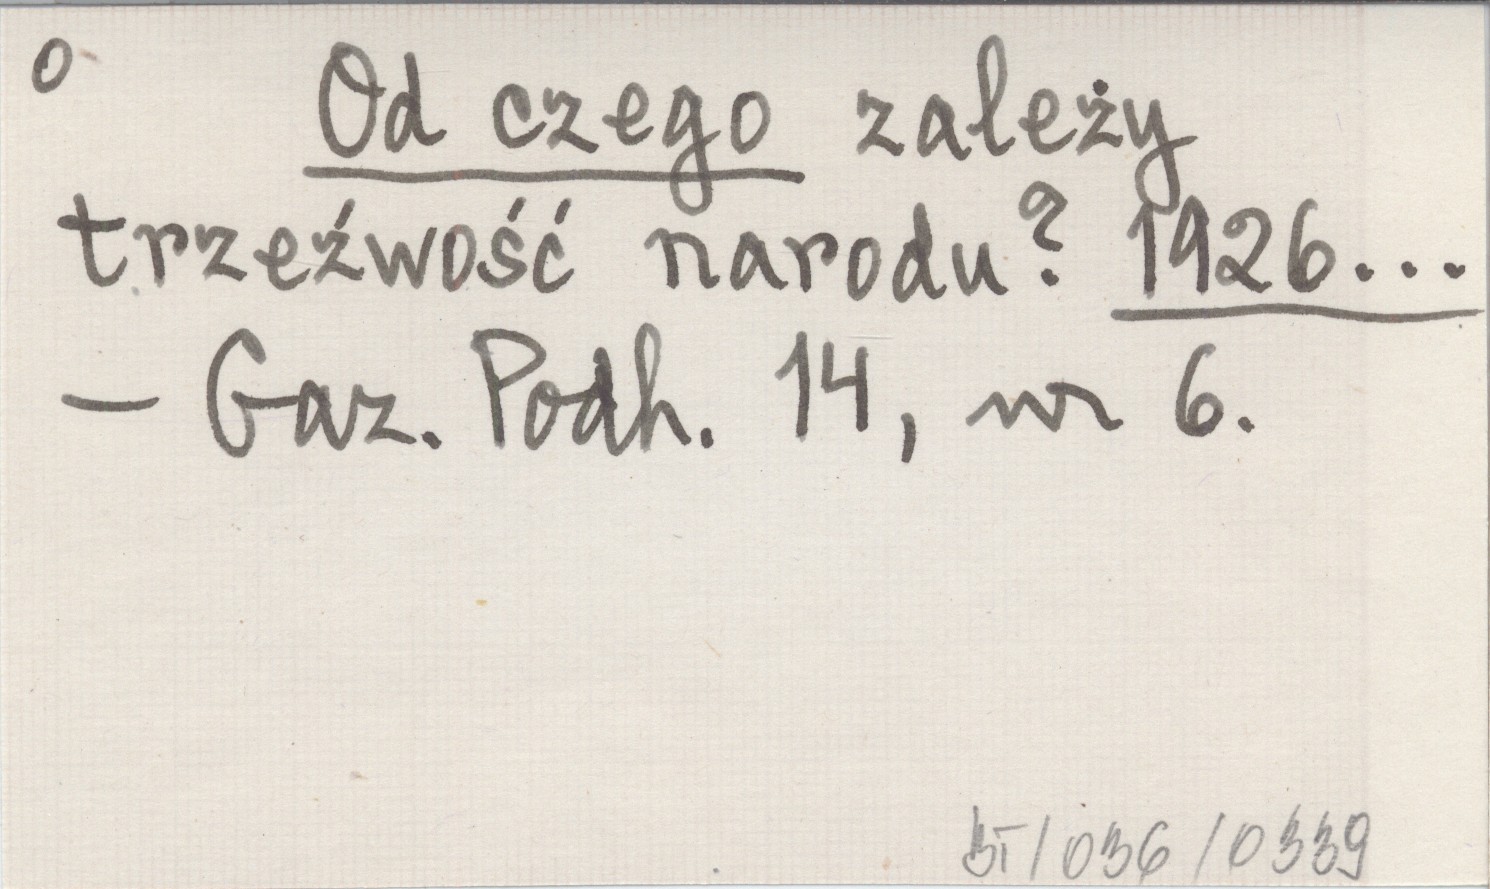 o
Od czego zależy
trzeźwość narodu? 1926...
- Gaz. Podh. 14, nr 6.
BT/036/0339